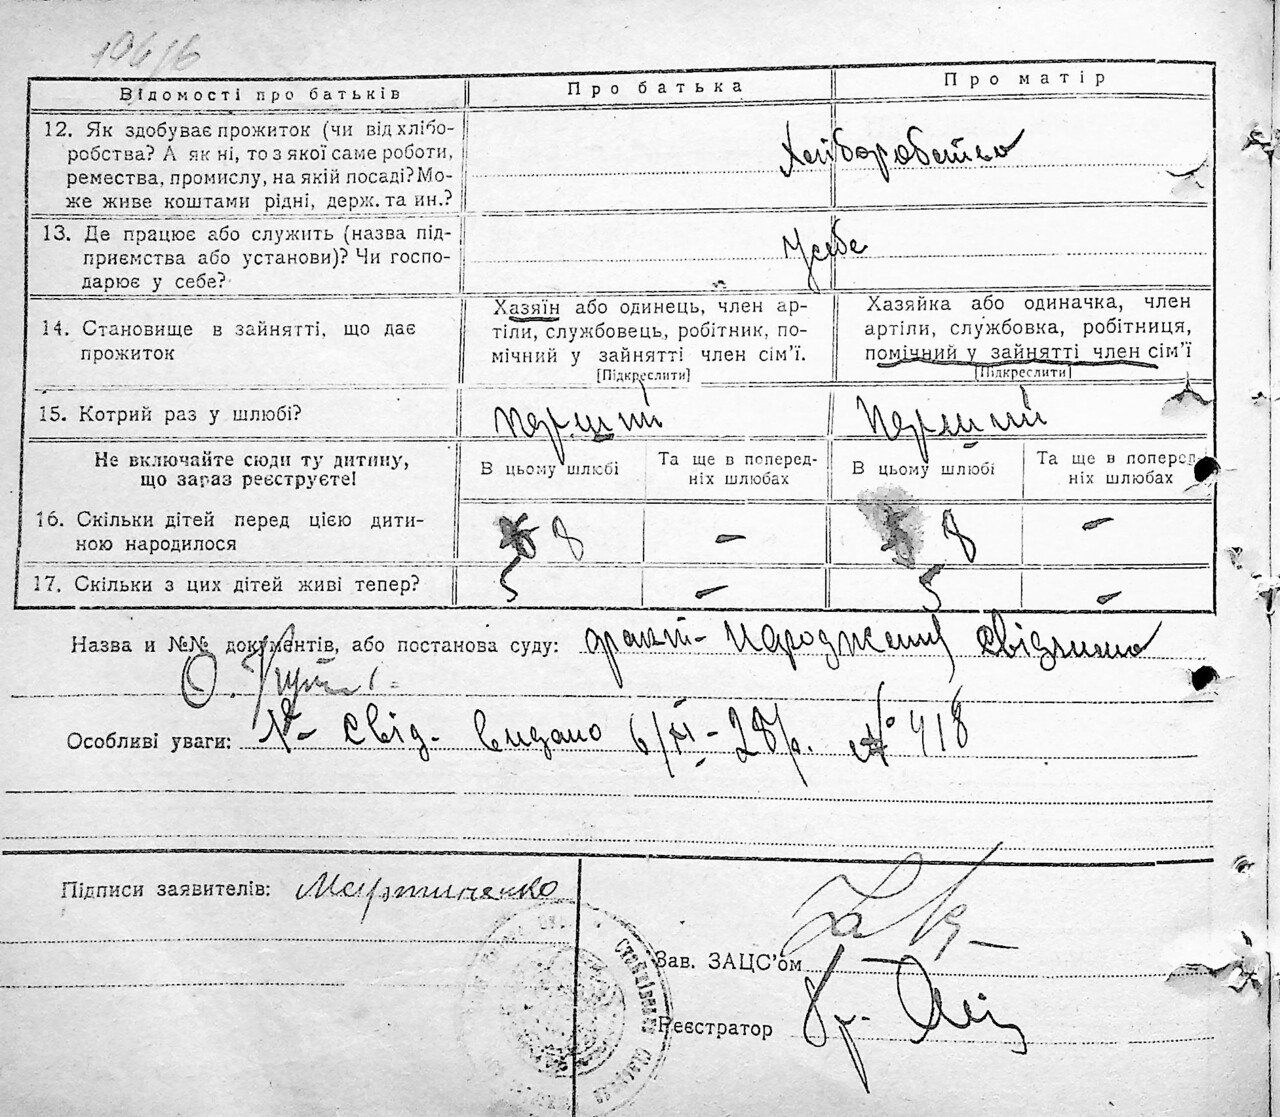 Відомості про батьків Про батька Про матір
12. Як здобуває прожиток (чи від хлібо-
робства? А як ні, то з якої саме роботи,
ремества, промислу, на якій посаді? Мо-
же живе коштами рідні, держ. та ин.?
Хліборобство
13. Де працює або служить (назва під-
приємства або установи)? Чи госпо-
дарює у себе?
У себе
14. Становище в зайнятті, що дає
прожиток
Хазяїн або одинець, член ар-
тіли, службовець, робітник, по-
мічний у зайнятті член сім'ї.
[Підкреслити]
Хазяйка або одиначка, член
артіли, службовка, робітниця,
помічний у зайнятті член сім'ї
[Підкреслити]
15. Котрий раз у шлюбі? перший перший
Не включайте сюди ту дитину,
що зараз реєструєте!
В цьому шлюбі
Та ще в поперед-
ніх шлюбах
В цьому шлюбі
Та ще в поперед-
ніх шлюбах
16. Скільки дітей перед цією дити-
ною народилося
8 – 8 –
17. Скільки з цих дітей живі тепер? 5 – 5 –
Назва и №№ документів, або постанова суду: факт народження свідчимо
Особлкві уваги: свід. видано 6/XI-28р. № 418
Підписи заявителів: Мартиненко
Зав. ЗАЦС'ом
Реєстратор